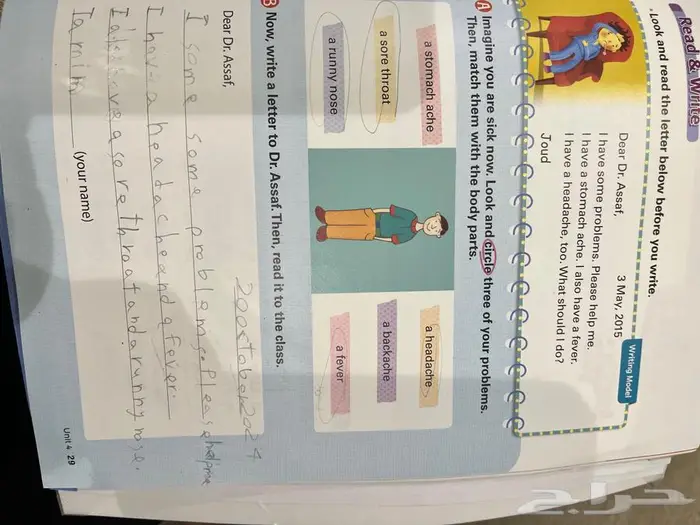 Read & Write
. Look and read the letter below before you write.
Writing Model
3 May, 2015
Dear Dr. Assaf,
I have some problems. Please help me.
I have a stomach ache. I also have a fever.
I have a headache, too. What should I do?
Joud
A Imagine you are sick now. Look and circle three of your problems.
Then, match them with the body parts.
a stomach ache
a sore throat
a runny nose
a headache
a backache
a fever
B Now, write a letter to Dr. Assaf. Then, read it to the class.
2024
Dear Dr. Assaf,
I some some problems. Please help me
I have a headache and a fever.
I also have a sore throat and a runny nose.
Tamim
(your name)
Unit 4 29
حراج